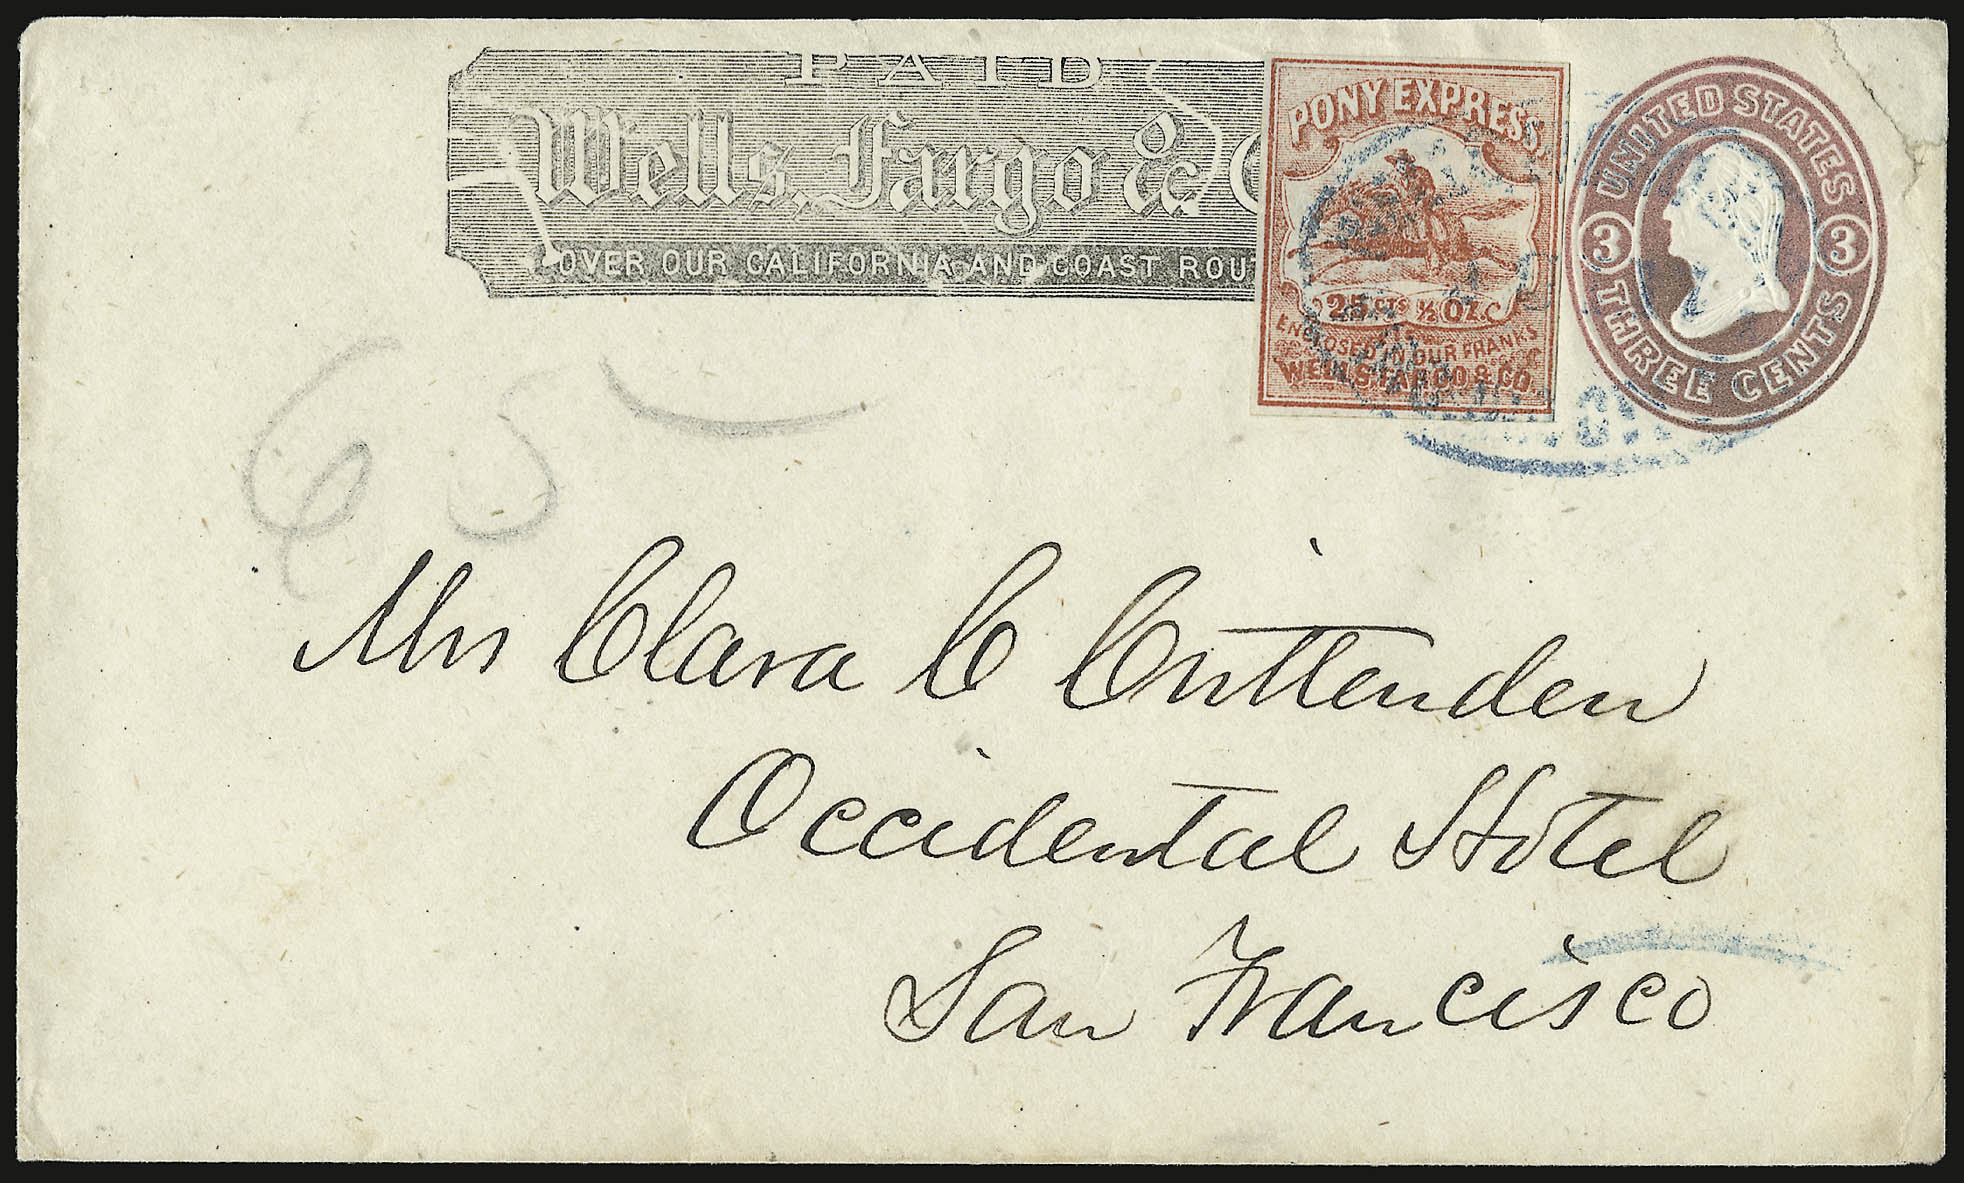 PAID
Wells, Fargo & C
OVER OUR CALIFORNIA AND COAST ROU
PONY EXPRESS,
25 CTS ½ OZ.
ENCLOSED IN OUR FRANKS
WELLS, FARGO & CO.
UNITED STATES
3 3
THREE CENTS
65
Mrs Clara C Crittenden
Occidental Hotel
San Francisco